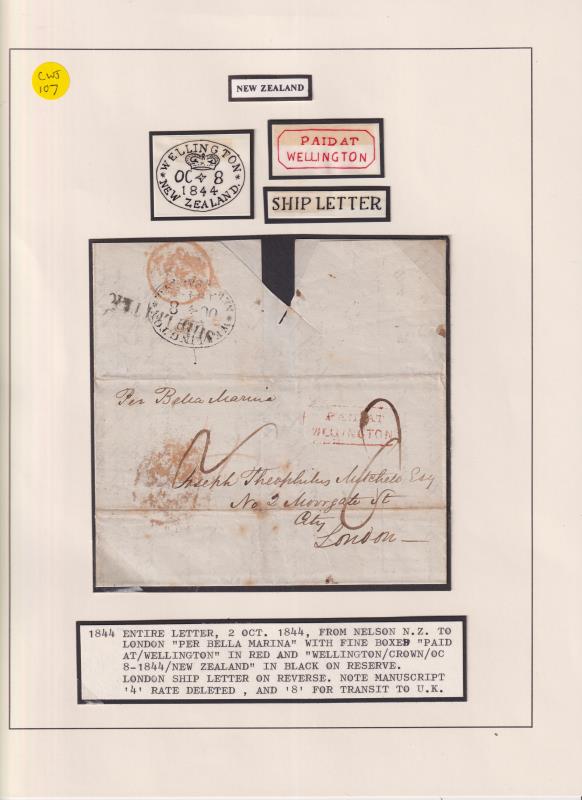 CWJ
107
NEW ZEALAND
WELLINGTON
OC 8
1844
NEW ZEALAND.
PAID AT
WELLINGTON
SHIP LETTER
WELLINGTON
OC 8
SHIP LETTER
Per Bella Marina
PAID AT
WELLINGTON
Joseph Theophilus Mitchell Esq
No 2 Moorgate St
City
London
1844 ENTIRE LETTER, 2 OCT. 1844, FROM NELSON N.Z. TO
LONDON "PER BELLA MARINA" WITH FINE BOXED "PAID
AT/WELLINGTON" IN RED AND "WELLINGTON/CROWN/OC
8-1844/NEW ZEALAND" IN BLACK ON RESERVE.
LONDON SHIP LETTER ON REVERSE. NOTE MANUSCRIPT
'4' RATE DELETED , AND '8' FOR TRANSIT TO U.K.